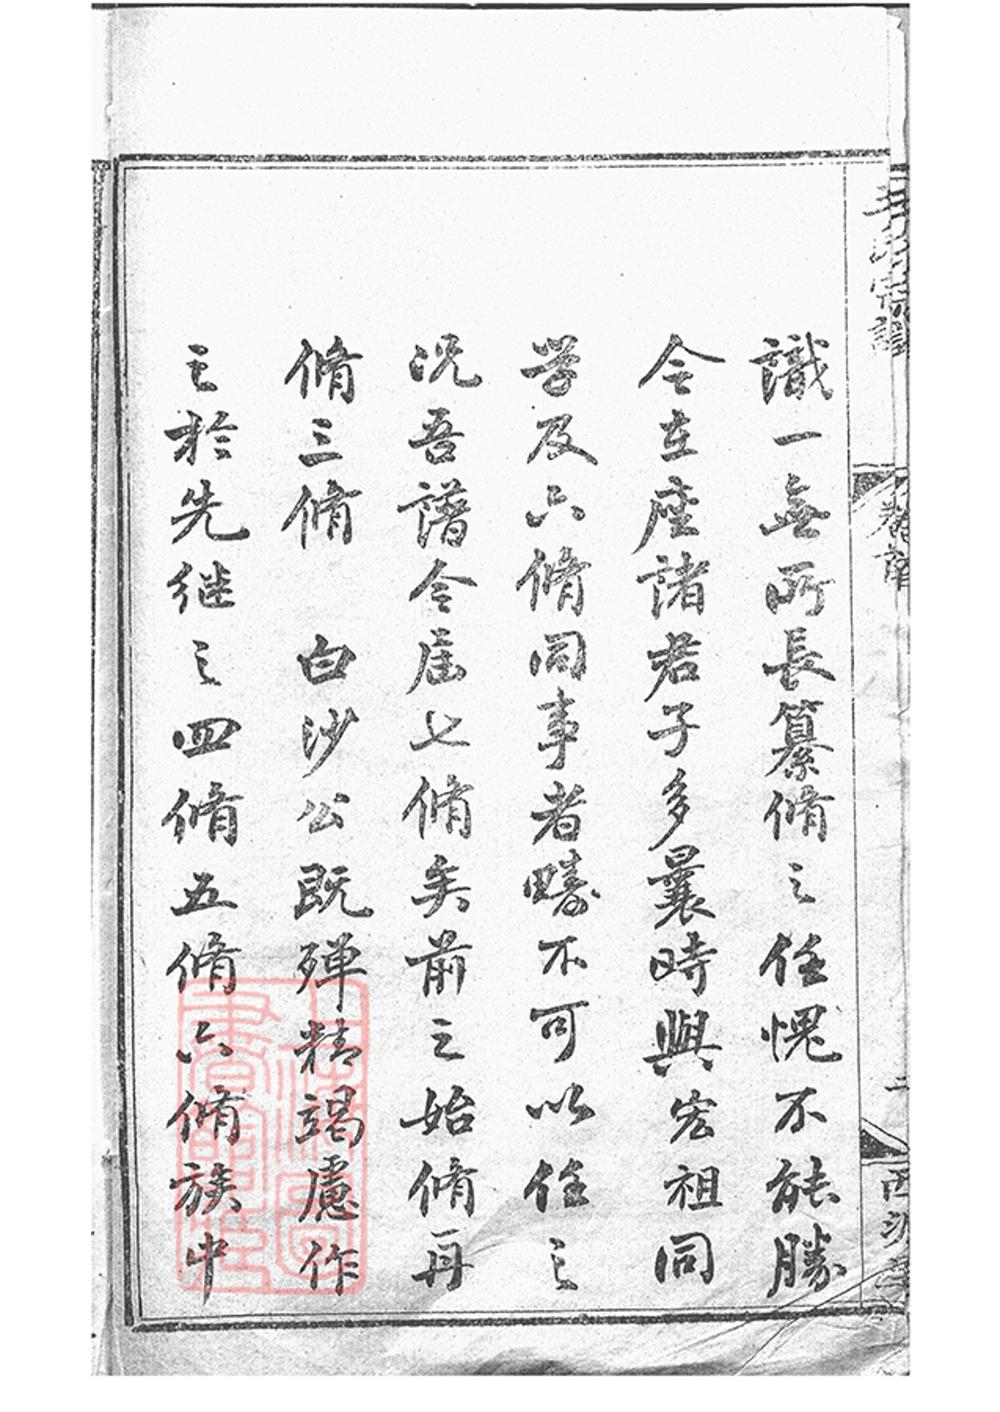 識一無所長纂脩之任愧不能勝
今在座諸君子多曩時與宏祖同
学及六脩同事者疇不可以任之
况吾譜今届七脩矣前之始脩再
脩三脩 白沙公既殫精竭慮作
之於先継之四脩五脩六脩族中
宗譜
卷首
二